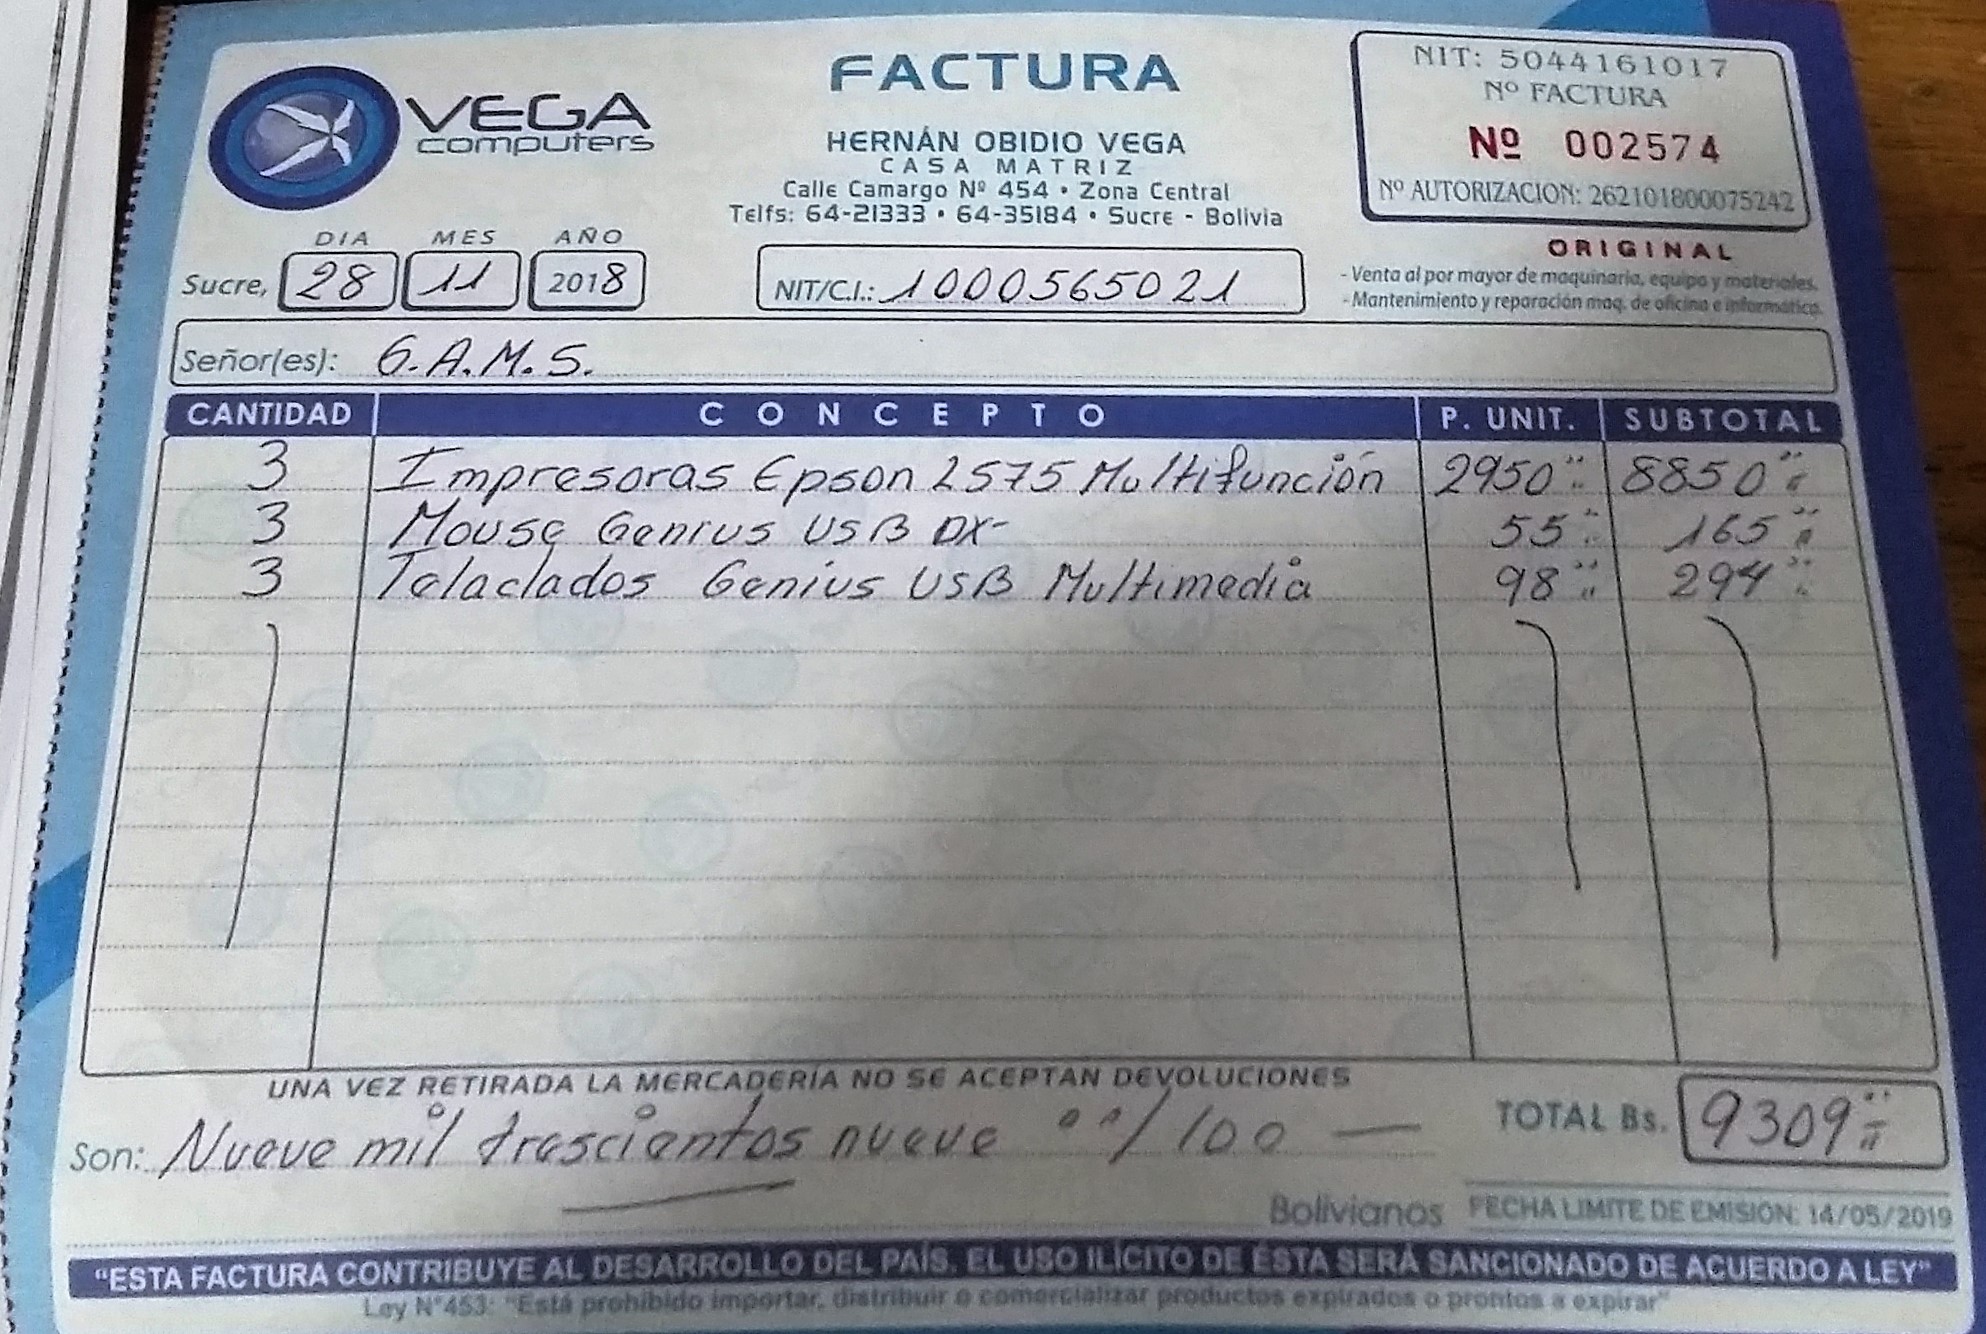 VEGA
computers
FACTURA
HERNÁN OBIDIO VEGA
CASA MATRIZ
Calle Camargo Nº 454 • Zona Central
Telfs: 64-21333 • 64-35184 • Sucre - Bolivia
NIT: 5044161017
Nº FACTURA
Nº 002574
Nº AUTORIZACION: 262101800075242
ORIGINAL
- Venta al por mayor de maquinaria, equipo y materiales.
- Mantenimiento y reparación maq. de oficina e informática.
DIA MES AÑO
Sucre, 28 11 2018
NIT/C.I.: 1000565021
Señor(es): G.A.M.S.
CANTIDAD CONCEPTO P. UNIT. SUBTOTAL
3 Impresoras Epson L575 Multifunción 2950 8850
3 Mouse Genius USB DX- 55 165
3 Telaclados Genius USB Multimedia 98 294
UNA VEZ RETIRADA LA MERCADERÍA NO SE ACEPTAN DEVOLUCIONES
Son: Nueve mil trescientos nueve 00/100 —
TOTAL Bs. 9309
Bolivianos
FECHA LIMITE DE EMISIÓN: 14/05/2019
"ESTA FACTURA CONTRIBUYE AL DESARROLLO DEL PAÍS. EL USO ILÍCITO DE ÉSTA SERÁ SANCIONADO DE ACUERDO A LEY"
Ley N°453: "Está prohibido importar, distribuir o comercializar productos expirados o prontos a expirar"